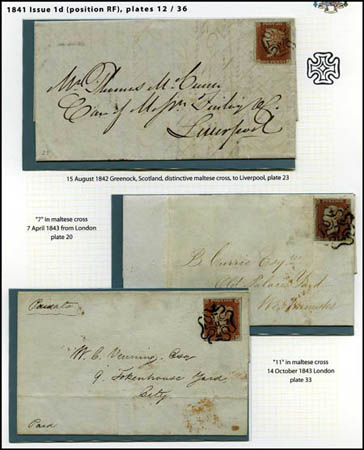 1841 Issue 1d (position RF), plates 12 / 36
Mr Thomas
Care of Messrs
Liverpool
15 August 1842 Greenock, Scotland, distinctive maltese cross, to Liverpool, plate 23
"7" in maltese cross
7 April 1843 from London
plate 20
B Currie Esq
Old Palace Yard
Private
W. C. Venning Esq
9 Tokenhouse Yard
City
Paid
"11" in maltese cross
14 October 1843 London
plate 33